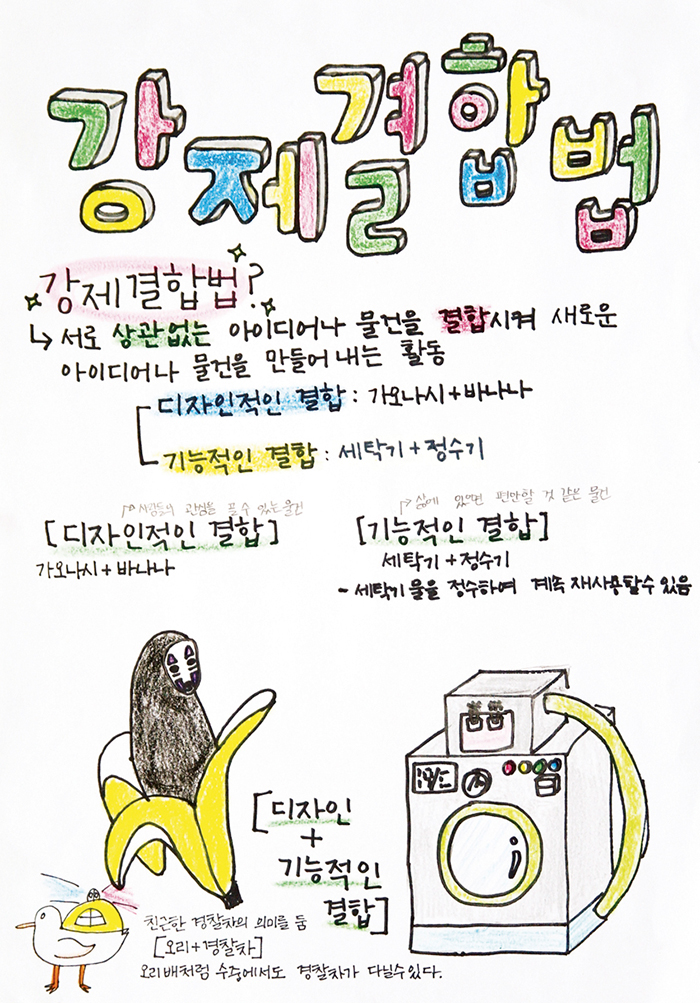 강제결합법
강제결합법?
↳ 서로 상관없는 아이디어나 물건을 결합시켜 새로운
아이디어나 물건을 만들어 내는 활동
디자인적인 결합 : 가오나시+바나나
기능적인 결합 : 세탁기+정수기
사람들의 관심을 끌 수 있는 물건
[디자인적인 결합]
가오나시+바나나
삶에 있으면 편안할 것 같은 물건
[기능적인 결합]
세탁기+정수기
- 세탁기 물을 정수하여 계속 재사용할 수 있음
[디자인
+
기능적인
결합]
친근한 경찰차의 의미를 둠
[오리+경찰차]
오리배처럼 수중에서도 경찰차가 다닐 수 있다.